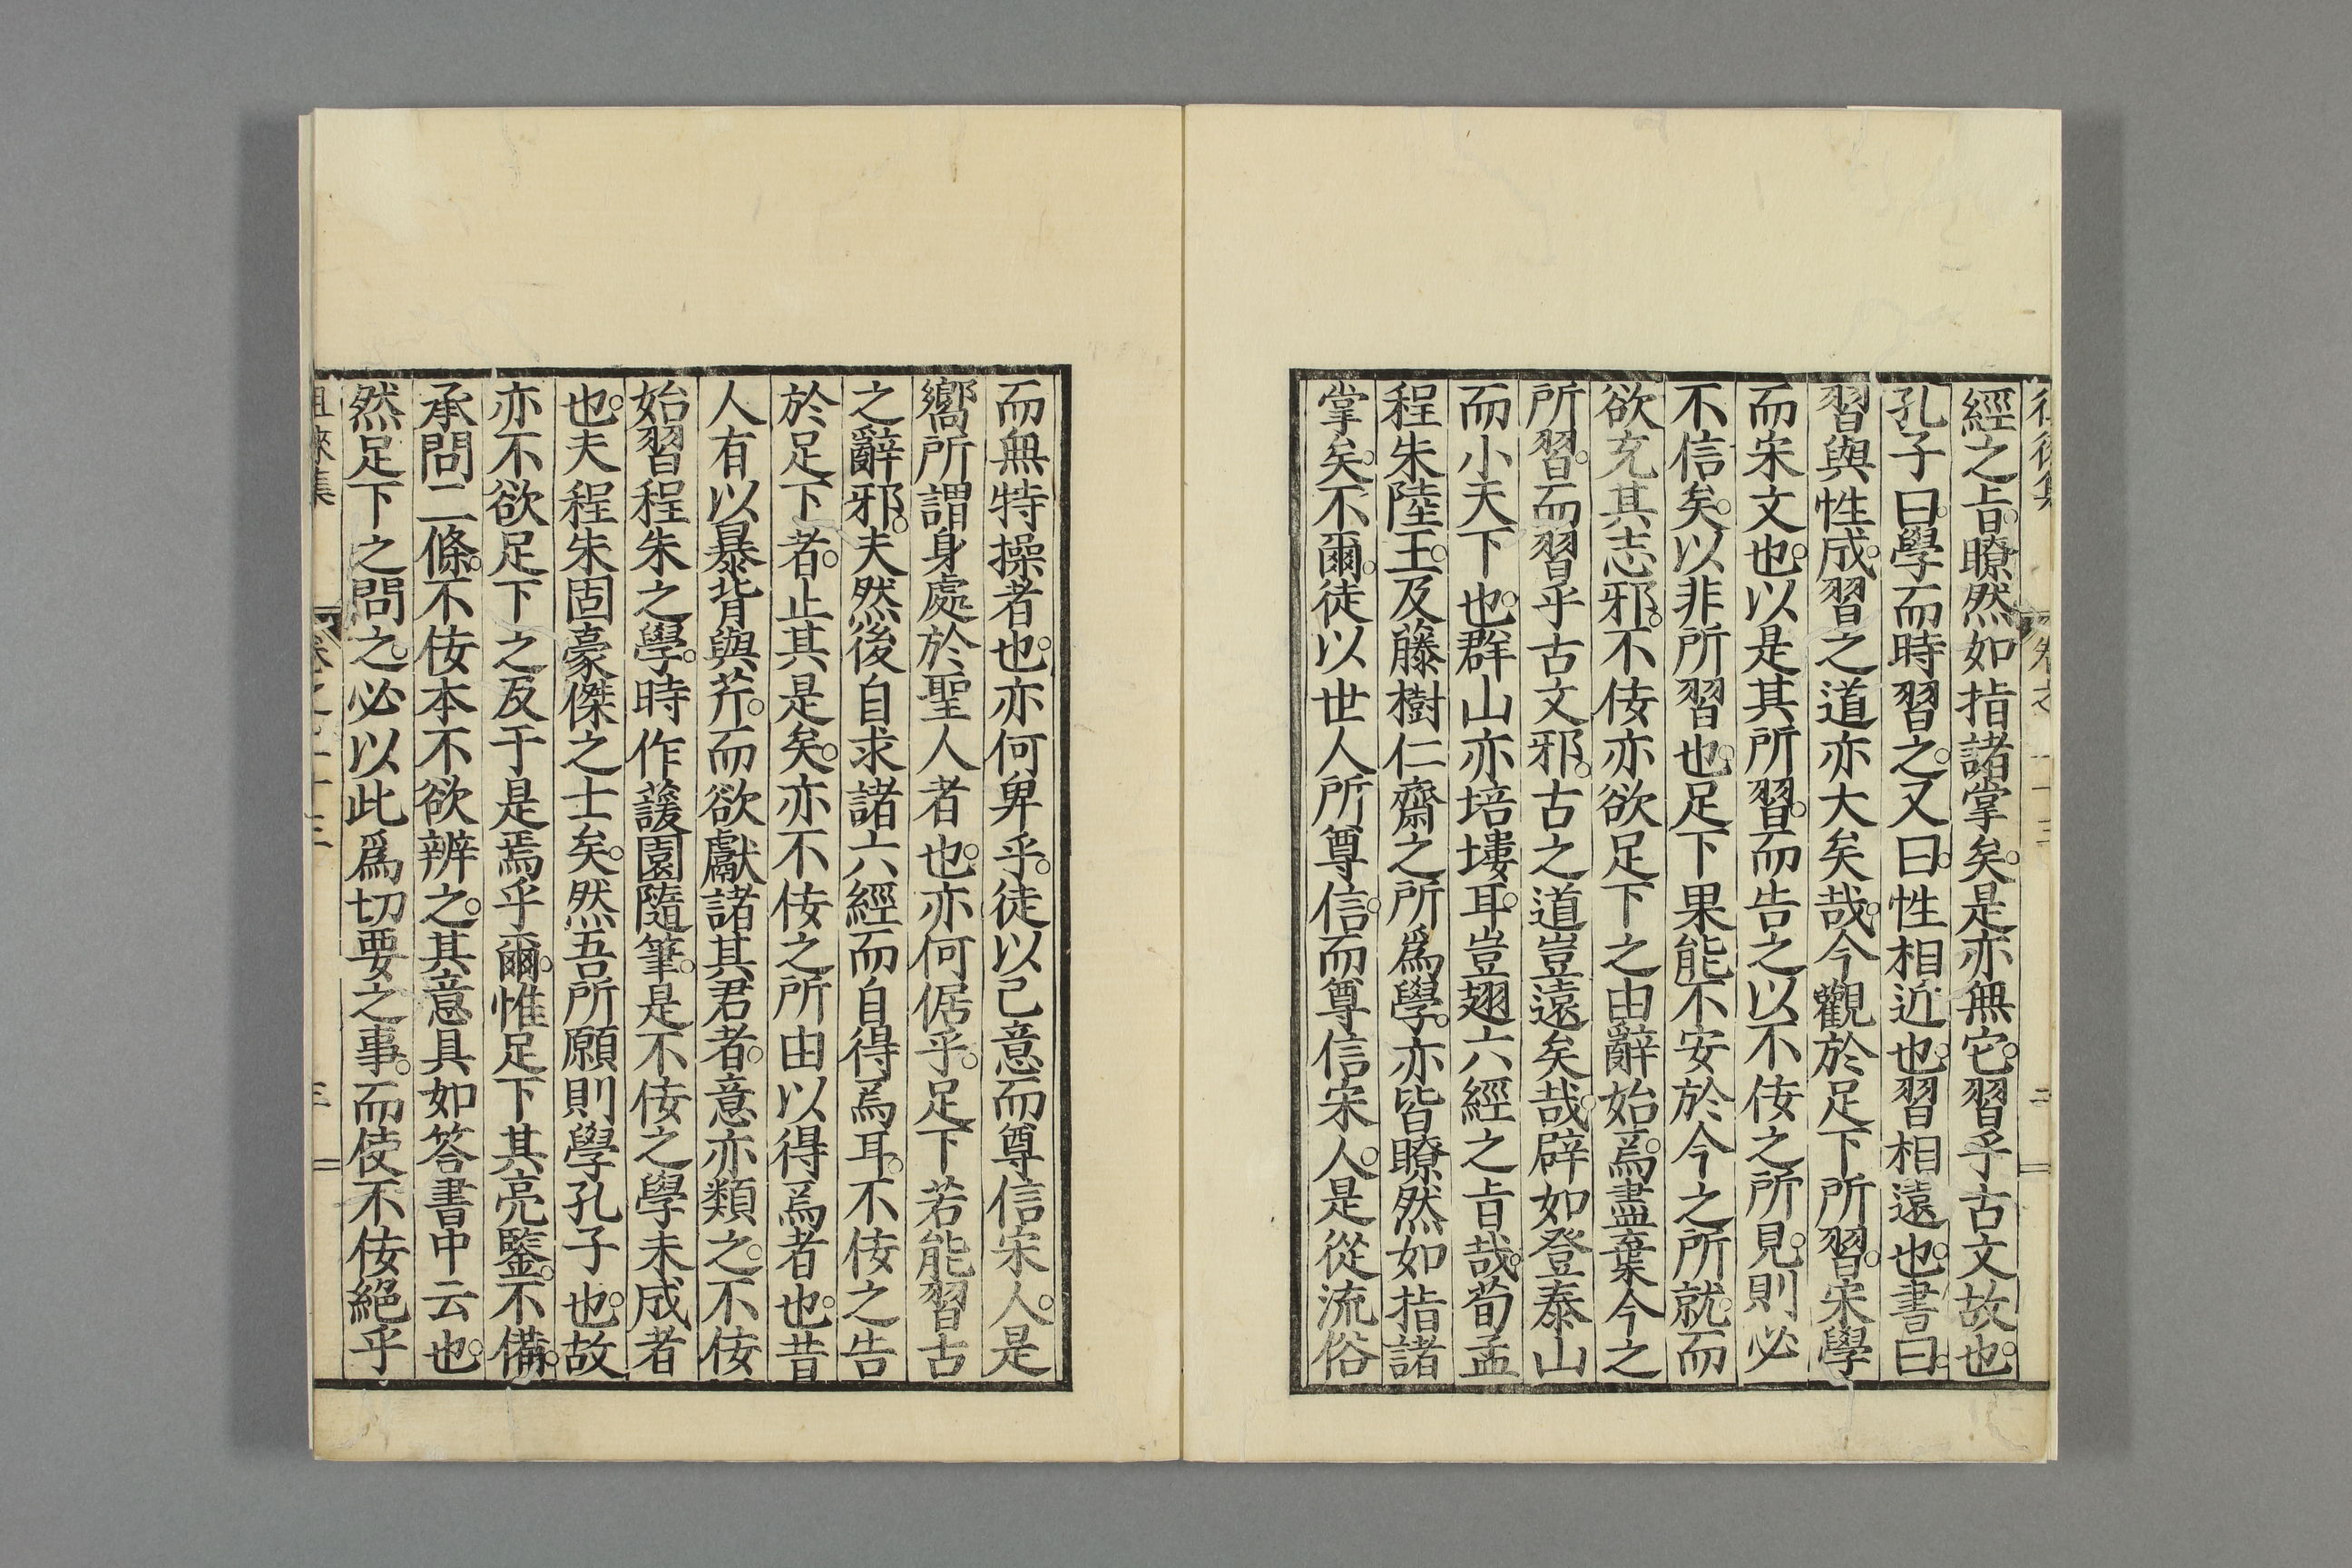 經之㫖。瞭然如指諸掌矣。是亦無它。習乎古文故也。
孔子曰。學而時習之。又曰。性相近也。習相遠也。書曰。
習與性成。習之道亦大矣哉。今觀於足下所習。宋學
而宋文也。以是其所習。而告之以不佞之所見。則必
不信矣。以非所習也。足下果能不安於今之所就。而
欲充其志邪。不佞亦欲足下之由辭始焉。盡棄今之
所習。而習乎古文邪。古之道豈遠矣哉。辟如登泰山
而小天下也。群山亦培塿耳。豈翅六經之㫖哉。荀孟
程朱陸王。及藤樹仁齋之所爲學。亦皆瞭然如指諸
掌矣。不爾。徒以世人所尊信。而尊信宋人。是從流俗
而無特操者也。亦何卑乎。徒以己意而尊信宋人。是
嚮所謂身處於聖人者也。亦何倨乎。足下若能習古
之辭邪。夫然後自求諸六經而自得焉耳。不佞之告
於足下者。止其是矣。亦不佞之所由以得焉者也。昔
人有以暴背與芹。而欲獻諸其君者。意亦類之。不佞
始習程朱之學。時作蘐園隨筆。是不佞之學未成者
也。夫程朱固豪傑之士矣。然吾所願則學孔子也。故
亦不欲足下之反于是焉乎爾。惟足下其亮鑒。不備。
承問二條。不佞本不欲辨之。其意具如答書中云也。
然足下之問之。必以此爲切要之事。而使不佞絕乎
徠集
卷之二十三
三